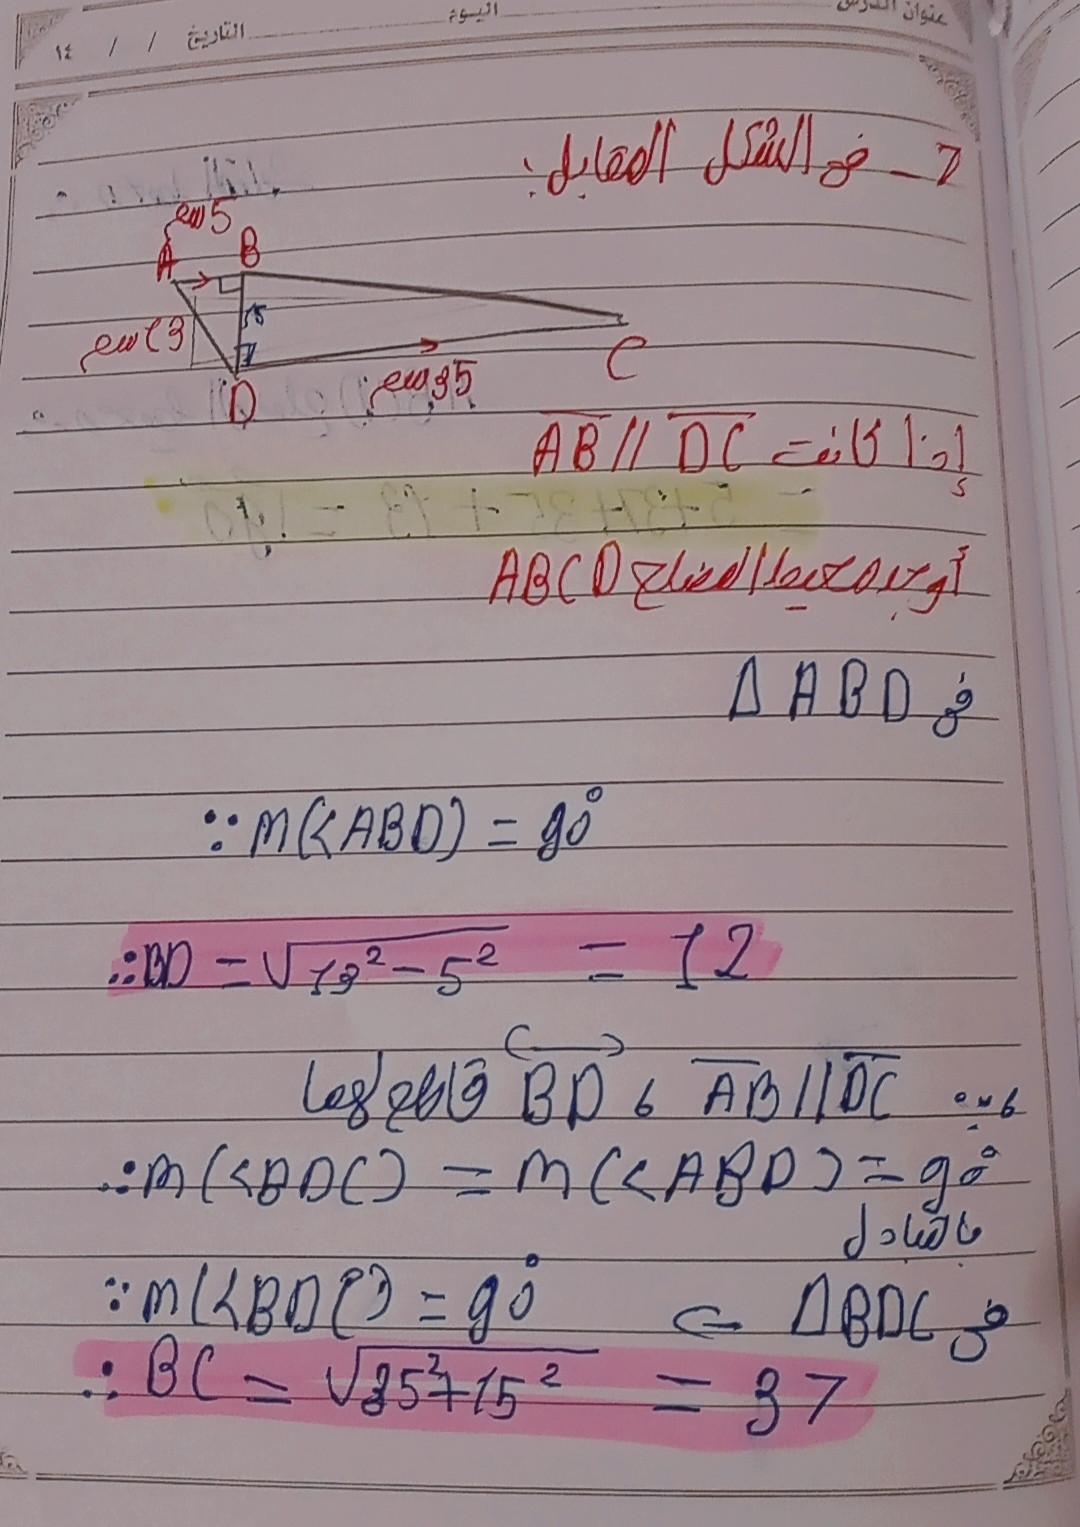 عنوان الدرس
اليوم
التاريخ / / ١٤
7 - في الشكل المقابل:
5 سم
A B
13 سم
15
D 35 سم C
إذا كانت AB // DC
أوجد محيط المضلع ABCD
في Δ ABD
∵ m(<ABD) = 90°
∴ BD = √13² - 5² = 12
∵ AB // DC ، BD قاطع لهما
∴ m(<BDC) = m(<ABD) = 90°
بالتبادل
في ΔBDC ⊂
∵ m(<BDC) = 90°
∴ BC = √35² + 15² = 37